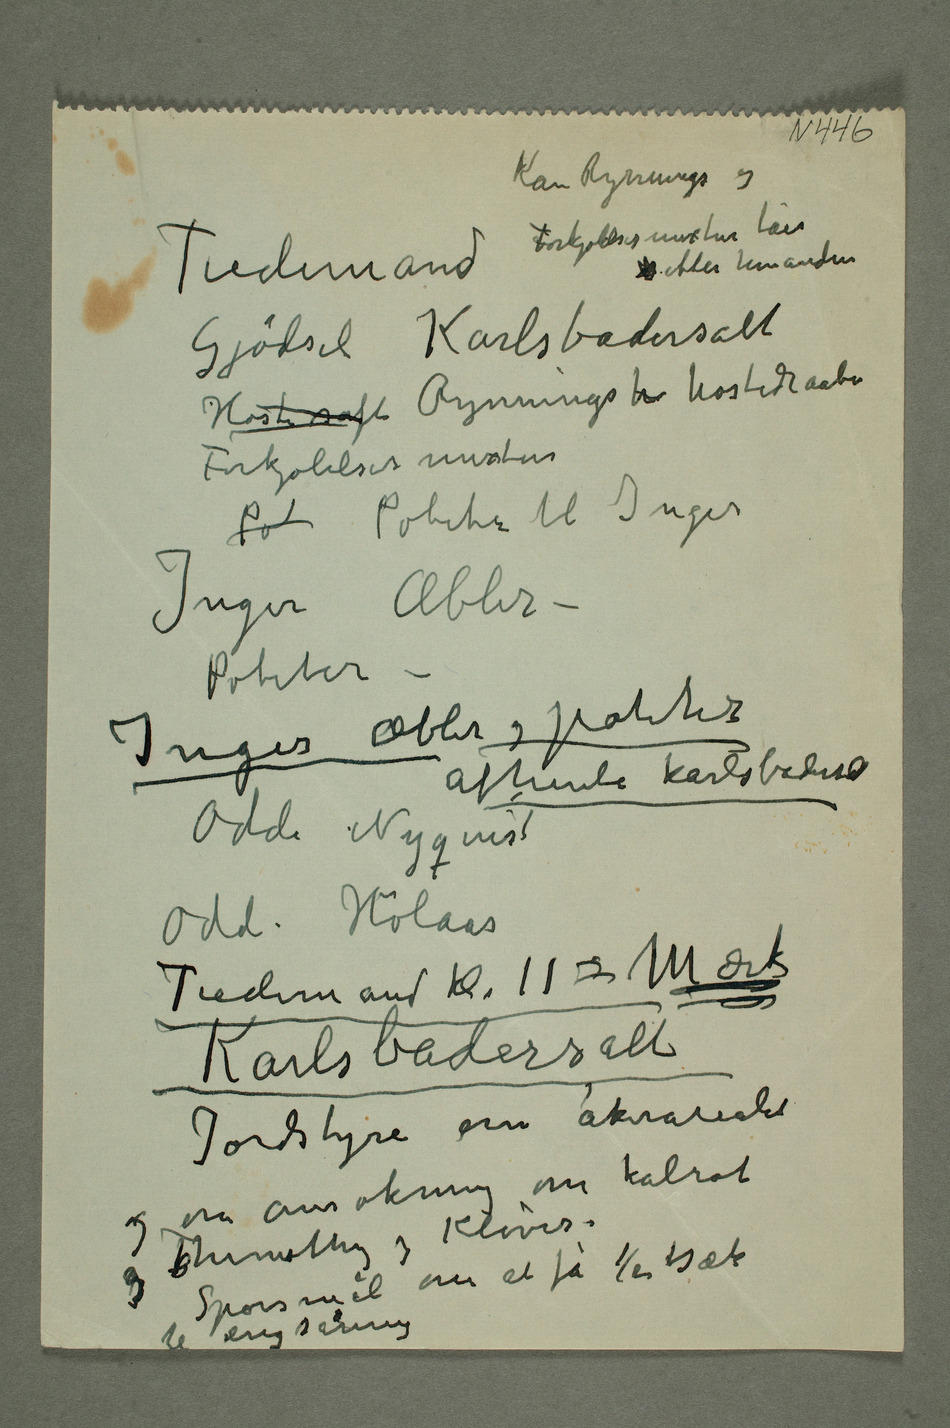 N446
Kan Rynnings og
Forkjølelses mixtur taes
efter hinanden
Tiedemand
Gjödsel Karlsbadersalt
Hostesaft Rynnings hostedraaber
Forkjølelses mixtur
Pot Poteter til Inger
Inger Æbler –
Poteter –
Inger Æbler og poteter
afhente karlsbaders
Odd Nyqvist
Odd. Hölaas
Tiedemand Kl. 11 Mærk
Karlsbadersalt
Jordstyre om åkerarealet
og om ansøkning om kålrot
og Thimothy og Klöver.
Spørsmål om at få 1/2 sæk
til engsåning